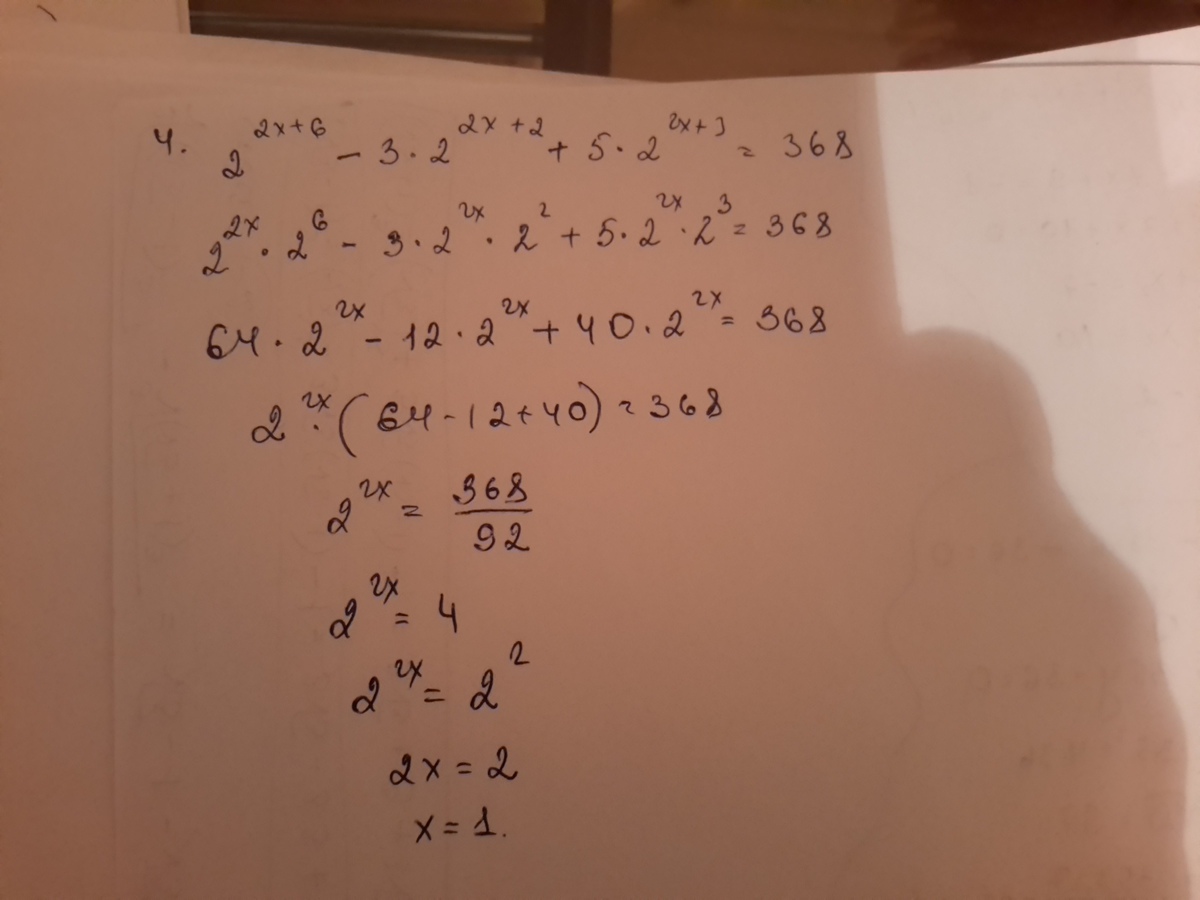 4. 2^{2x+6} - 3·2^{2x+2} + 5·2^{2x+3} = 368
2^{2x}·2^{6} - 3·2^{2x}·2^{2} + 5·2^{2x}·2^{3} = 368
64·2^{2x} - 12·2^{2x} + 40·2^{2x} = 368
2^{2x}·(64-12+40) = 368
2^{2x} = \frac{368}{92}
2^{2x} = 4
2^{2x} = 2^{2}
2x = 2
x = 1.